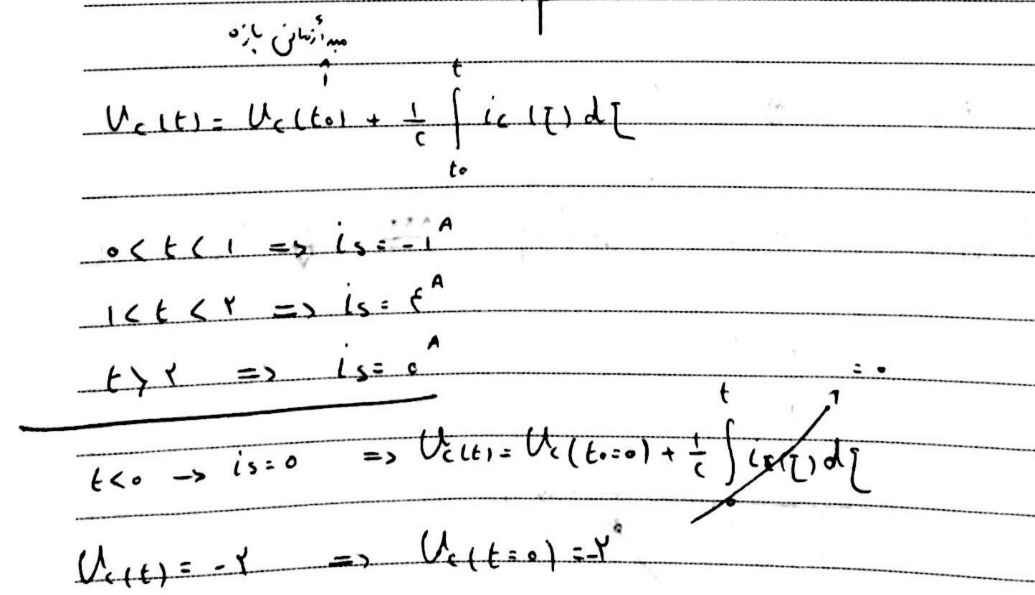 مبدأ زمانی بازه
↑
U_c(t) = U_c(t₀) + 1/c ∫_{t₀}^{t} i_c(ξ) dξ
۰ < t < ۱ => is = -۱ A
۱ < t < ۲ => is = ۴ A
t > ۲ => is = ۰ A
t < ۰ → is = ۰ => U_c(t) = U_c(t₀=۰) + 1/c ∫_{۰}^{t} i_c(ξ) dξ = ۰
U_c(t) = -۲ => U_c(t=۰) = -۲